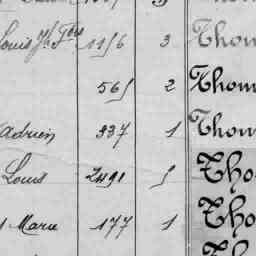 Louis 1156 3 Thom
565 2 Thom
Adrien 337 1 Thom
Louis 2491 5 Tho
Marie 177 1 Tho